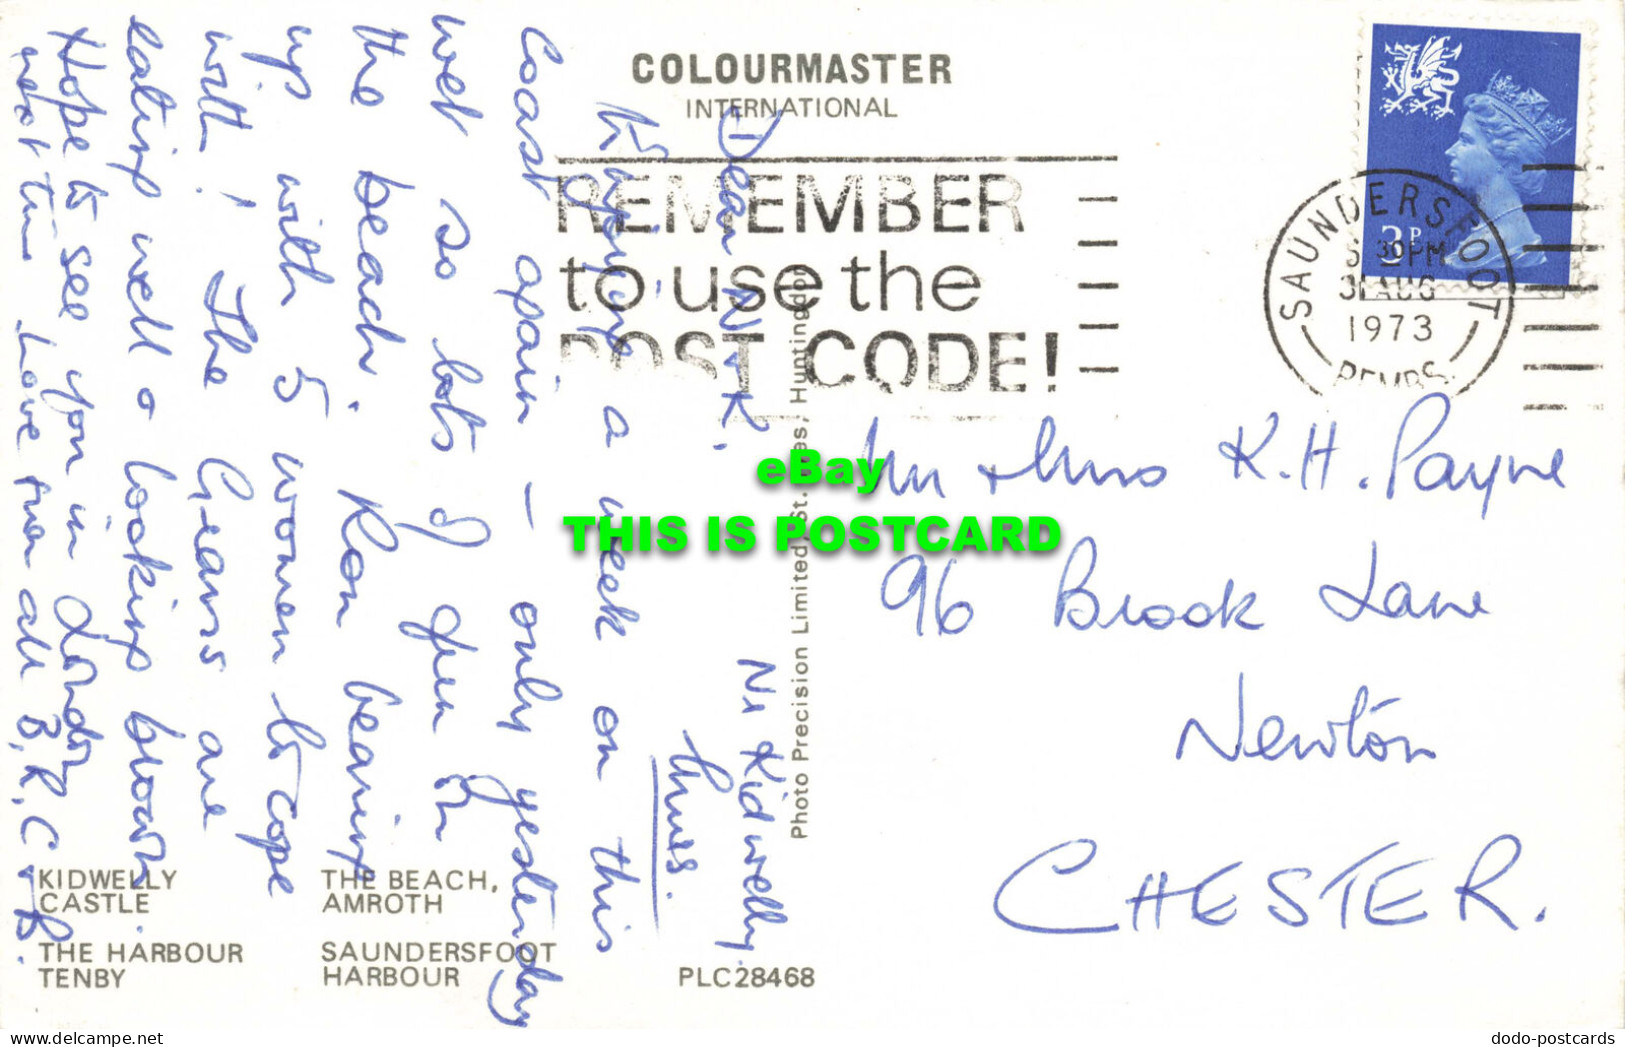 COLOURMASTER
INTERNATIONAL
REMEMBER
to use the
POST CODE!
SAUNDERSFOOT
30 PM
31 AUG
1973
PEMBS.
3P
Nr Kidwelly.
Dear N + K.
Enjoying a week on this
Coast again – only yesterday
wet so lots of fun on
the beach. Ron bearing
up with 5 women to cope
with! The are
eating well & looking brown
Hope to see you in London
next time Love from all B, R, C + B.
Mr + Mrs K. H. Payne
96 Brook Lane
Newton
CHESTER.
Photo Precision Limited, St. Ives, Huntingdon
KIDWELLY
CASTLE
THE BEACH,
AMROTH
THE HARBOUR
TENBY
SAUNDERSFOOT
HARBOUR
PLC28468
eBay
THIS IS POSTCARD
dodo-postcards